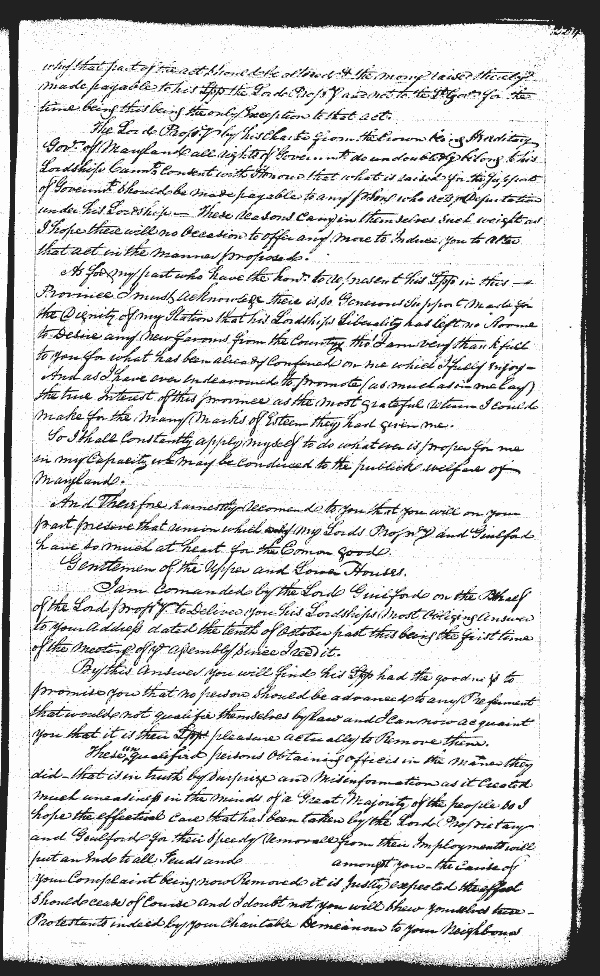 why that part of the act should be altered & the mony raised thereby
made payable to his Lpp the Lord Prop.ry and not to the Lt Govr. for the
time being this being the only Exception to that act.
The Lord Prop.ry by his Charter from the Crown being Hereditary
Govr. of Maryland all rights of Governmt. do undoubtedly belong to his
Lordship Cannot Consent with Honour that what is raised for the support
of Governmt. should be made payable to any persons who act by Deputation
under his Lordship — These Reasons Carry in them selves such weight as
I hope there will no Occasion to offer any more to Induce you to alter
that act in the manner proposed.
As for my part who have the honr. to represent his Lpp in this —
Province I must acknowledge there is so Generous support made for
the Dignity of my Station that his Lordships Liberality has left no Roome
to Desire any New favours from the Country tho' I am very thankfull
to you for what has been already Conferred on me which I fully enjoy —
And as I have ever endeavoured to promote (as much as in me lay)
the true Interest of this province as the most grateful return I could
make for the Many Marks of Esteem they had given me.
So I shall Constantly apply my self to do whatever is proper for me
in my Capacity wh. may be conduced to the publick welfare of
Maryland.
And Therefore earnestly recomend to you that you will on your
part preserve that union which my Lords Prop.ry and Guilford
have so much at heart for the Comon good.
Gentlemen of the Upper and Lower Houses.
I am Comanded by the Lord Guilford on the Behalf
of the Lord prop.ry to deliver you his Lordships Most Obliging Answer
to your Address dated the tenth of October past this being the first time
of the Meeting of ye Assembly since I red it.
By this Answer you will find his Lpp had the goodness to
promise you that no person should be advanced to any Preferment
that would not qualifie themselves by Law and I Can now acquaint
you that it is their Lpps pleasure actually to Remove them.
These unqualified persons Obtaining offices in the Maner they
did — that is in truth by surprize and Misinformation as it Created
much uneasiness in the minds of a Great Majority of the people so I
hope the effectual Care that has been taken by the Lord Proprietary
and Guilford for their Speedy Removall from their Imployments will
put an End to all Feuds and amongst you — the Cause of
your Complaint being now Removed it is Justly expected the effect
should cease of Course and I doubt not you will shew yourselves true —
Protestants indeed by your Charitable Demeanour to your Neighbours